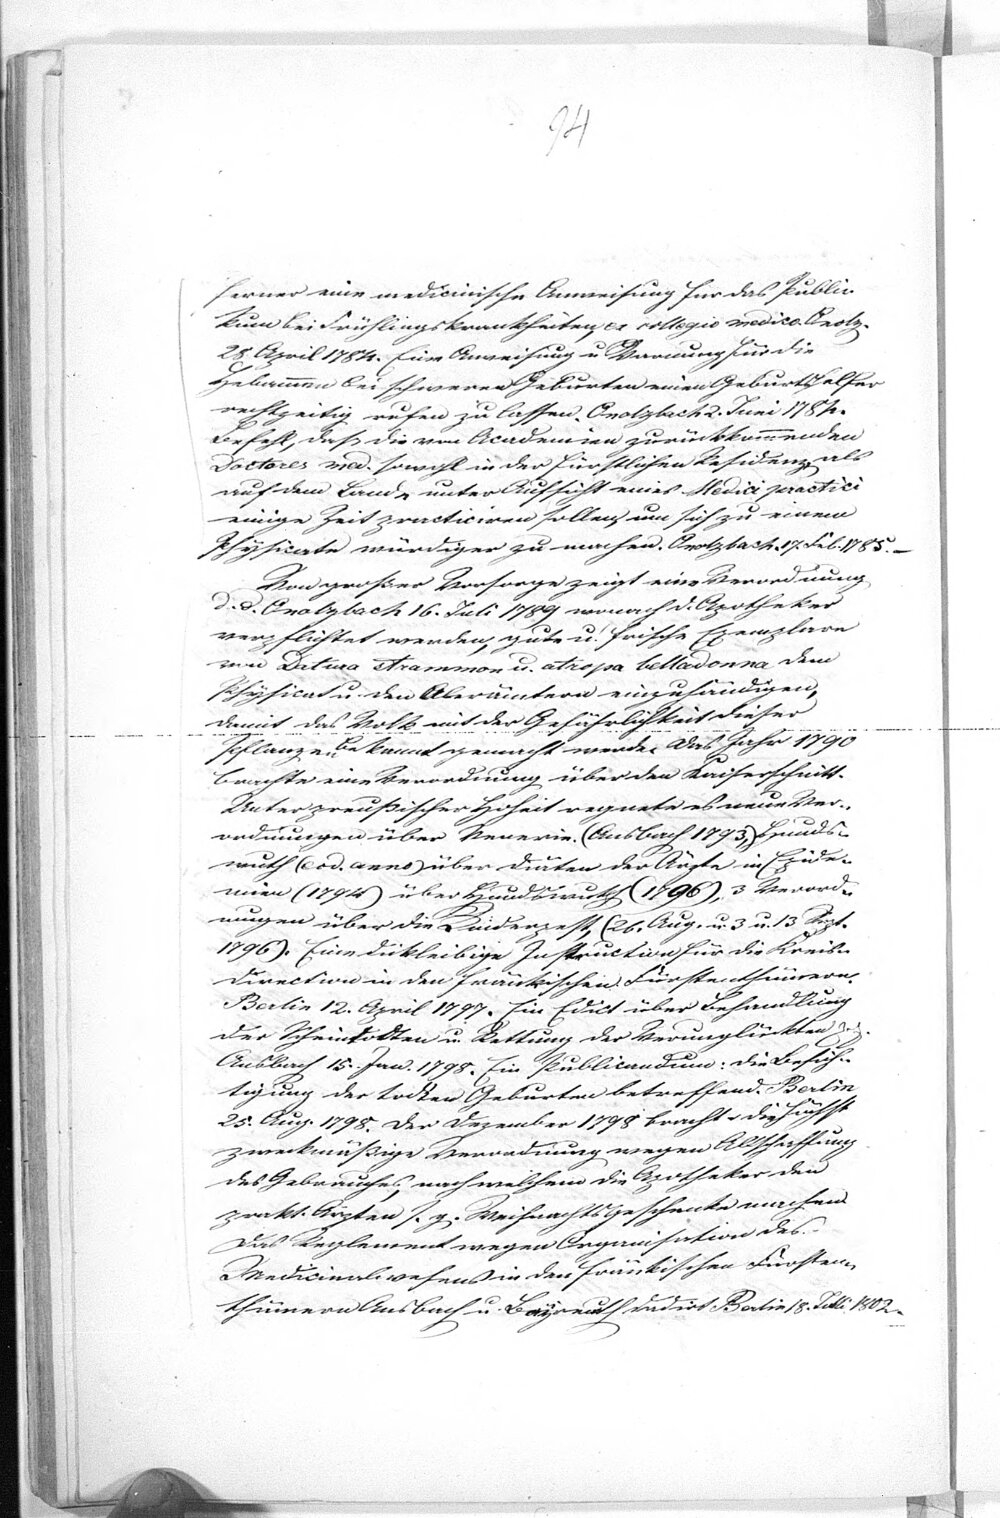 94
ferner eine medicinische Anweisung für das Publi-
kum bei Frühlingskrankheiten, ex collegio medico Onolz.
28. April 1784. Eine Anweisung u. Warnung für die
Hebammen bei schweren Geburten einen Geburtshelfer
rechtzeitig rufen zu lassen. Onolzbach 2. Juni 1784.
Befehl, daß die von Academien zurückkommenden
Doctores med. sowohl in der fürstlichen Residenz als
auf dem Lande unter Aufsicht eines Medici practici
einige Zeit practiciren sollen, um sich zu einem
Physicate würdiger zu machen. Onolzbach 17. Feb. 1785. –
Von großer Vorsorge zeigt eine Verordnung
d. d. Onolzbach 16. Juli 1789 wonach d. Apotheker
verpflichtet werden, gute u. frische Exemplare
von Datura strammon u. atropa belladonna dem
Physicat u. den Oberämtern einzuhändigen,
damit das Volk mit der Gefährlichkeit dieser
Pflanzen bekannt gemacht werde. Das Jahr 1790
brachte eine Verordnung über den Kaiserschnitt.
Unter preußischer Hoheit regnete es neue Ver-
ordnungen über Venerie. (Ansbach 1793,) Hunds-
wuth (eod. anno) über Diäten der Ärzte in Epide-
mien (1794) über Hundswuth (1796), 3 Verord-
nungen über die Rinderpest, (26. Aug. u. 3 u. 13 Sept.
1796). Eine dickleibige Instruction für die Kreis-
direction in den fränkischen Fürstenthümern.
Berlin 12. April 1797. Ein Edict über Behandlung
der Scheintodten u. Rettung der Verunglückten
Ansbach 15. Jan. 1798. Ein Publicandum: die Besich-
tigung der todten Geburten betreffend. Berlin
25. Aug. 1798. Der Dezember 1798 brachte die höchst
zweckmäßige Verordnung wegen Abschaffung
des Gebrauches, nach welchem die Apotheker den
prakt. Ärzten s. g. Weihnachtsgeschenke machen
Das Reglement wegen Organisation des
Medicinalwesens in den fränkischen Fürsten-
thümern Ansbach u. Bayreuth datirt Berlin 18. Juli 1802.